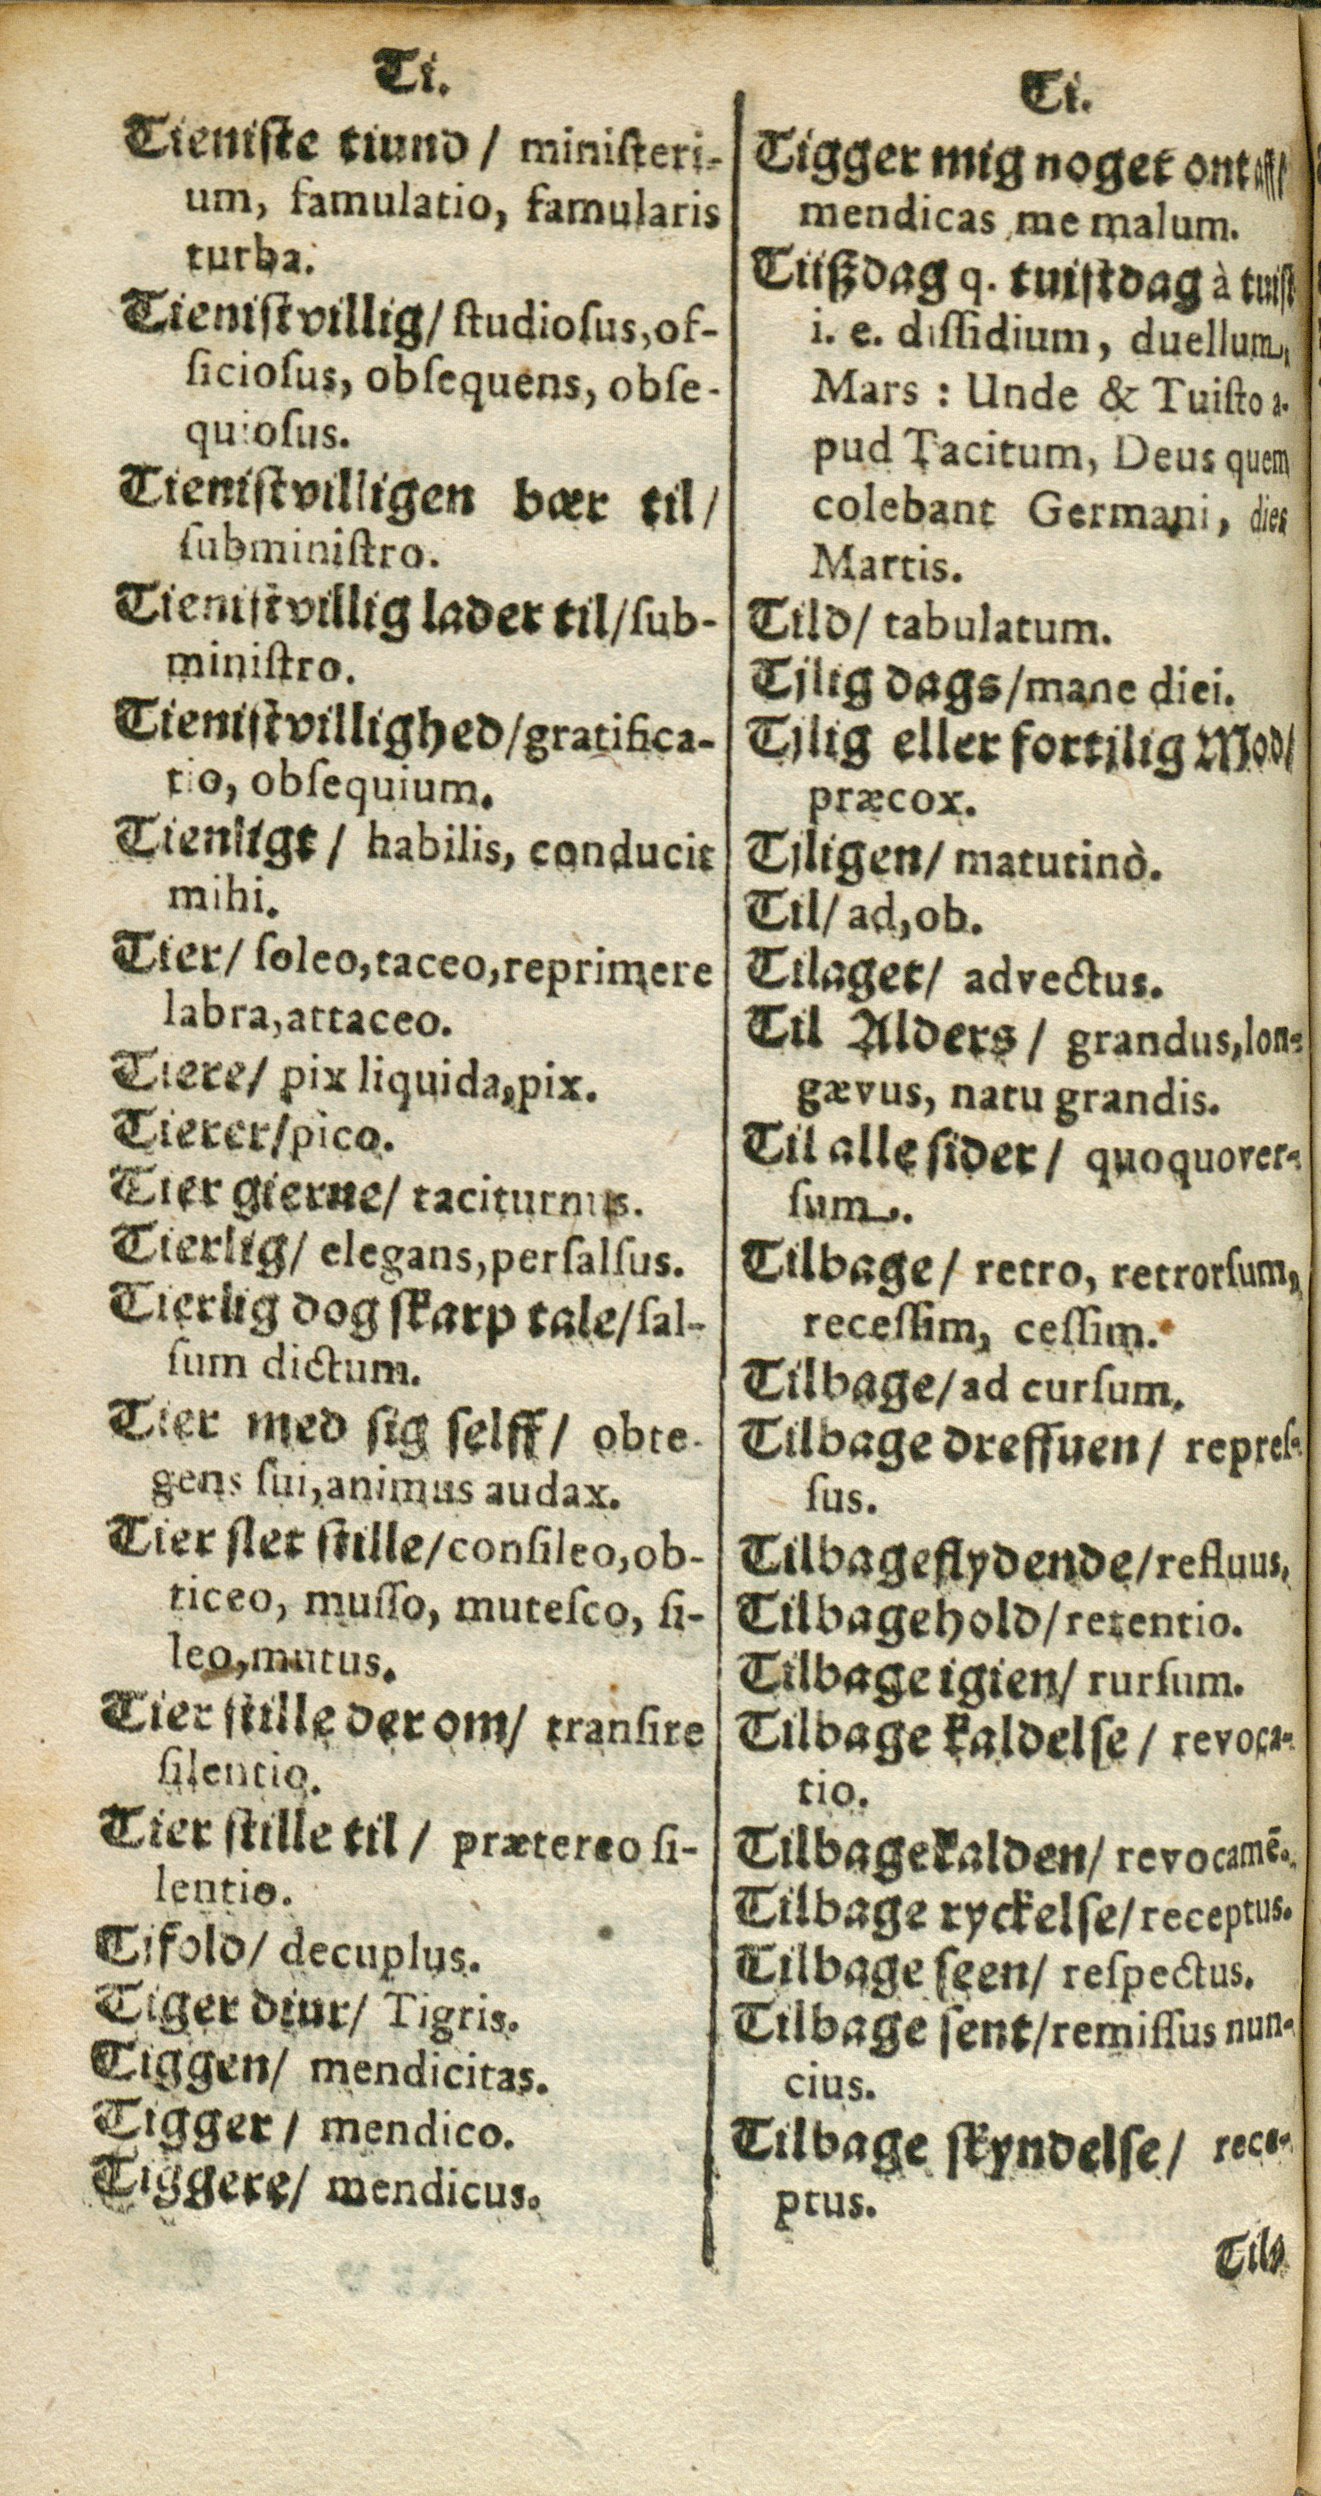 Ti.
Tieniſte tiund / miniſteri-
um, famulatio, famularis
turba.
Tieniſtvillig/ ſtudioſus, of-
ficioſus, obſequens, obſe-
quioſus.
Tieniſtvilligen bær til/
ſubminiſtro.
Tieniſtvillig lader til/ſub-
miniſtro.
Tieniſtvillighed/gratifica-
tio, obſequium.
Tienligt / habilis, conducit
mihi.
Tier/ ſoleo, taceo, reprimere
labra, attaceo.
Tiere/ pix liquida, pix.
Tierer/pico.
Tier gierne/ taciturnus.
Tierlig/ elegans, perſalſus.
Tierlig dog ſkarp tale/ſal-
ſum dictum.
Tier med ſig ſelff/ obte-
gens ſui, animus audax.
Tier ſlet ſtille/conſileo, ob-
ticeo, muſſo, muteſco, ſi-
leo, mutus.
Tier ſtille der om/ tranſire
ſilentio.
Tier ſtille til / prætereo ſi-
lentio.
Tifold/ decuplus.
Tiger diur/ Tigris.
Tiggen/ mendicitas.
Tigger / mendico.
Tiggere/ mendicus.
Ti.
Tigger mig noget ont aff/
mendicas me malum.
Tiißdag q. tuiſtdag à tuiſt
i. e. diſſidium, duellum,
Mars : Unde & Tuiſto a-
pud Tacitum, Deus quem
colebant Germani, dies
Martis.
Tild/ tabulatum.
Tjlig dags/mane diei.
Tjlig eller fortjlig Mod/
præcox.
Tjligen/ matutinò.
Til/ ad, ob.
Tilaget/ advectus.
Til Alders / grandus, lon-
gævus, natu grandis.
Til alle ſider / quoquover-
ſum.
Tilbage/ retro, retrorſum,
receſſim, ceſſim.
Tilbage/ad curſum.
Tilbage dreffuen/ repreſ-
ſus.
Tilbageflydende/refluus,
Tilbagehold/retentio.
Tilbage igien/ rurſum.
Tilbage kaldelſe / revoca-
tio.
Tilbagekalden/ revocamē.
Tilbage ryckelſe/receptus.
Tilbage ſeen/ reſpectus.
Tilbage ſent/remiſſus nun-
cius.
Tilbage ſkyndelſe/ rece-
ptus.